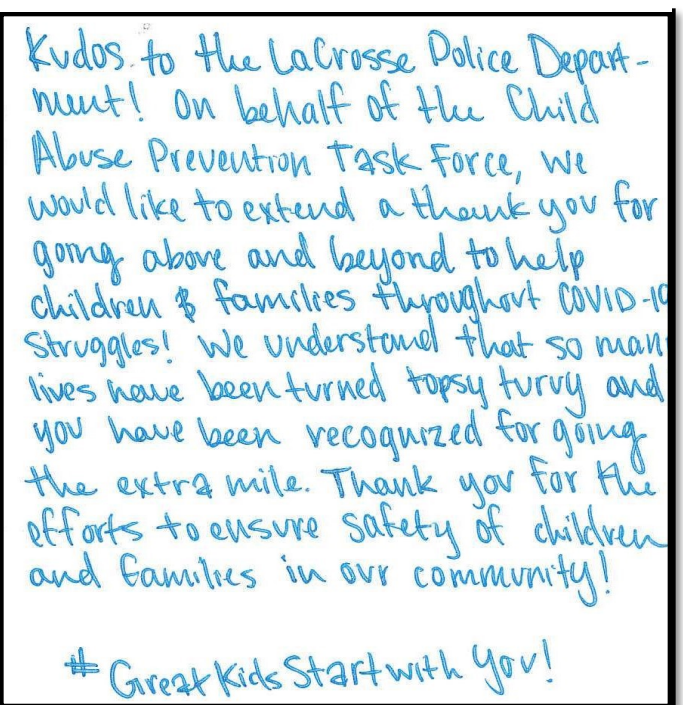 Kudos to the LaCrosse Police Depart-
ment! On behalf of the Child
Abuse Prevention Task Force, we
would like to extend a thank you for
going above and beyond to help
children & families throughout COVID-19
struggles! We understand that so many
lives have been turned topsy turvy and
you have been recognized for going
the extra mile. Thank you for the
efforts to ensure safety of children
and families in our community!
#GreatKidsStartwithYou!